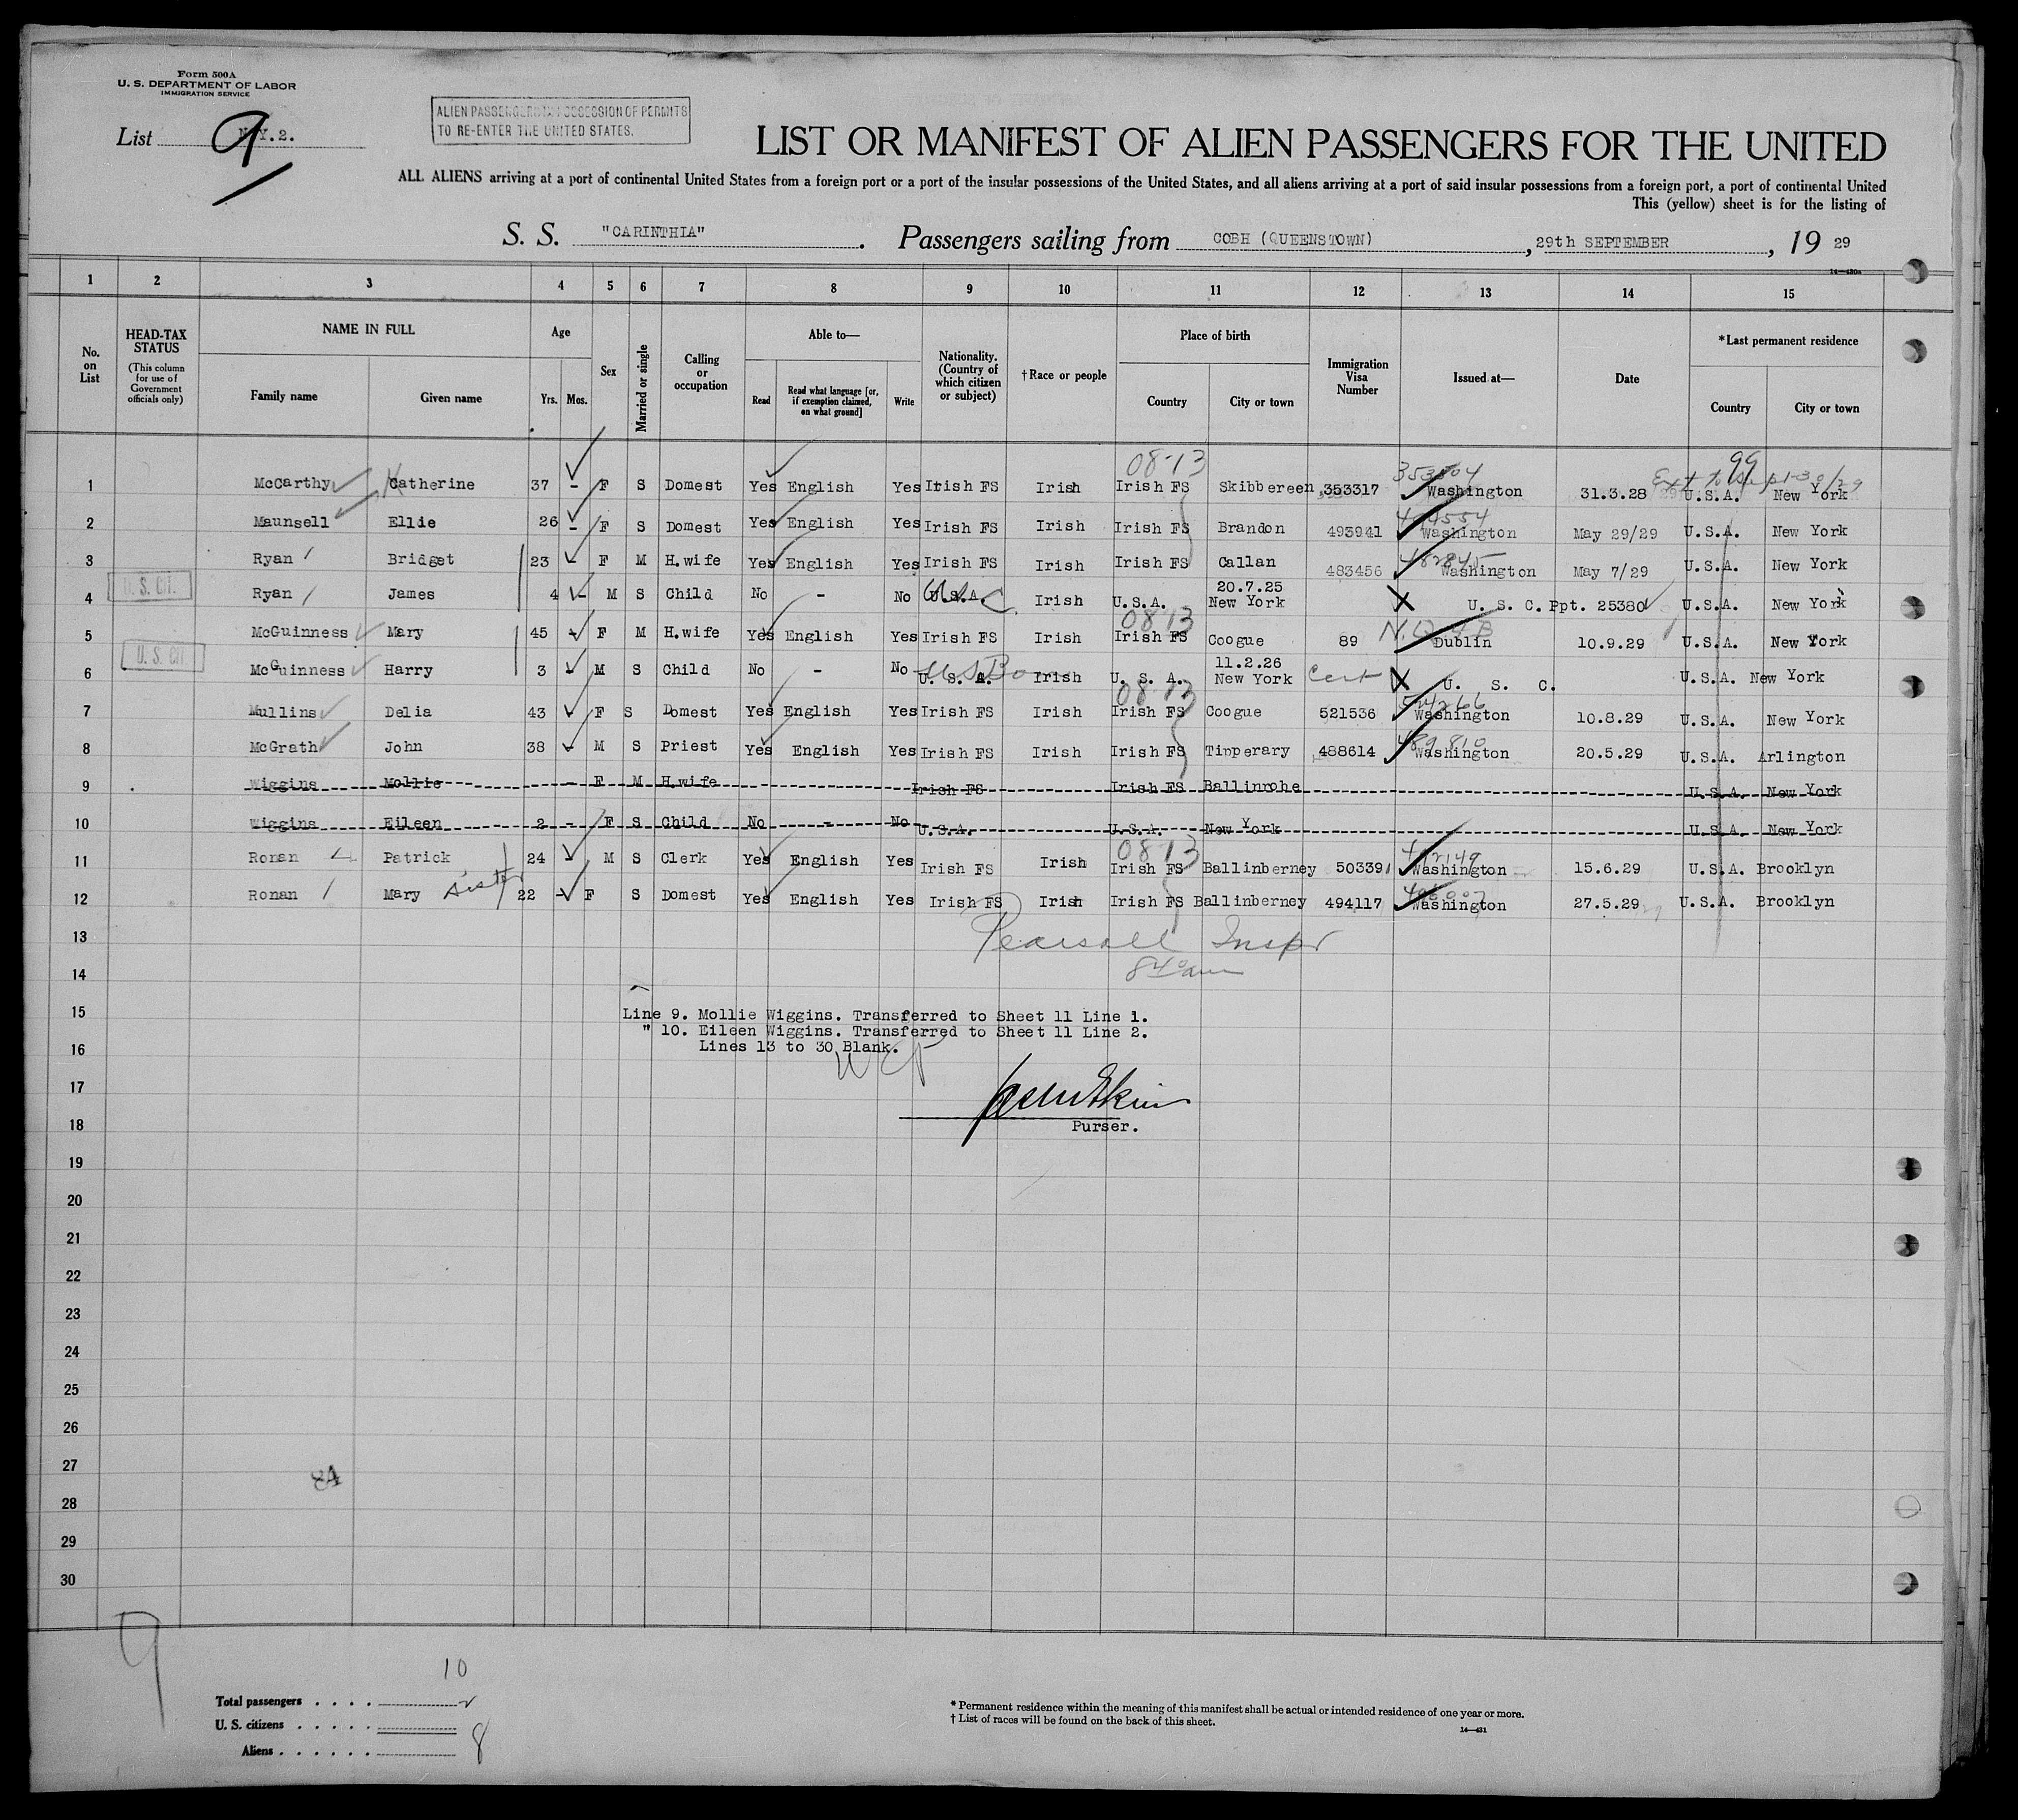 Form 500A
U. S. DEPARTMENT OF LABOR
IMMIGRATION SERVICE
List N.Y.2.
9
ALIEN PASSENGERS IN POSSESSION OF PERMITS
TO RE-ENTER THE UNITED STATES.
LIST OR MANIFEST OF ALIEN PASSENGERS FOR THE UNITED
ALL ALIENS arriving at a port of continental United States from a foreign port or a port of the insular possessions of the United States, and all aliens arriving at a port of said insular possessions from a foreign port, a port of continental United
This (yellow) sheet is for the listing of
S. S. "CARINTHIA" . Passengers sailing from COBH (QUEENSTOWN) , 29th SEPTEMBER , 19 29
14—430a
1 2 3 4 5 6 7 8 9 10 11 12 13 14 15
No. on List HEAD-TAX STATUS (This column for use of Government officials only) NAME IN FULL Family name Given name Age Yrs. Mos. Sex Married or single Calling or occupation Able to— Read Read what language [or, if exemption claimed, on what ground] Write Nationality. (Country of which citizen or subject) † Race or people Place of birth Country City or town Immigration Visa Number Issued at— Date *Last permanent residence Country City or town
08-13 99
Ext to Sept-30/29
1 McCarthy Catherine 37 - F S Domest Yes English Yes Irish FS Irish Irish FS Skibbereen 353317 Washington 31.3.28 U.S.A. New York
2 Maunsell Ellie 26 - F S Domest Yes English Yes Irish FS Irish Irish FS Brandon 493941 Washington May 29/29 U.S.A. New York
3 Ryan Bridget 23 F M H.wife Yes English Yes Irish FS Irish Irish FS Callan 483456 Washington May 7/29 U.S.A. New York
U. S. CIT.
4 Ryan James 4 - M S Child No - No U.S.A. Irish U.S.A. 20.7.25 New York X U. S. C. Ppt. 25380 U.S.A. New York
08 13
5 McGuinness Mary 45 - F M H.wife Yes English Yes Irish FS Irish Irish FS Coogue 89 Dublin 10.9.29 U.S.A. New York
U. S. CIT.
6 McGuinness Harry 3 M S Child No - No U. S. A. Irish U. S. A. 11.2.26 New York Cert X U. S. C. U.S.A. New York
08 13
7 Mullins Delia 43 F S Domest Yes English Yes Irish FS Irish Irish FS Coogue 521536 Washington 10.8.29 U.S.A. New York
8 McGrath John 38 - M S Priest Yes English Yes Irish FS Irish Irish FS Tipperary 488614 Washington 20.5.29 U.S.A. Arlington
9 Wiggins Mollie - F M H.wife Irish FS Irish FS Ballinrobe U.S.A. New York
10 Wiggins Eileen 2 - F S Child No - No U.S.A. U.S.A. New York U.S.A. New York
08 13
11 Ronan Patrick 24 M S Clerk Yes English Yes Irish FS Irish Irish FS Ballinberney 503391 Washington 15.6.29 U.S.A. Brooklyn
12 Ronan Mary sister 22 - F S Domest Yes English Yes Irish FS Irish Irish FS Ballinberney 494117 Washington 27.5.29 U.S.A. Brooklyn
13 Pearsall Inspr
14 840 am
15 Line 9. Mollie Wiggins. Transferred to Sheet 11 Line 1.
" 10. Eileen Wiggins. Transferred to Sheet 11 Line 2.
16 Lines 13 to 30 Blank.
17
18 Purser.
19
20
21
22
23
24
25
26
27
84
28
29
30
9
10
Total passengers . . . .
U. S. citizens . . . . .
Aliens . . . . . . 8
* Permanent residence within the meaning of this manifest shall be actual or intended residence of one year or more.
† List of races will be found on the back of this sheet.
14—431